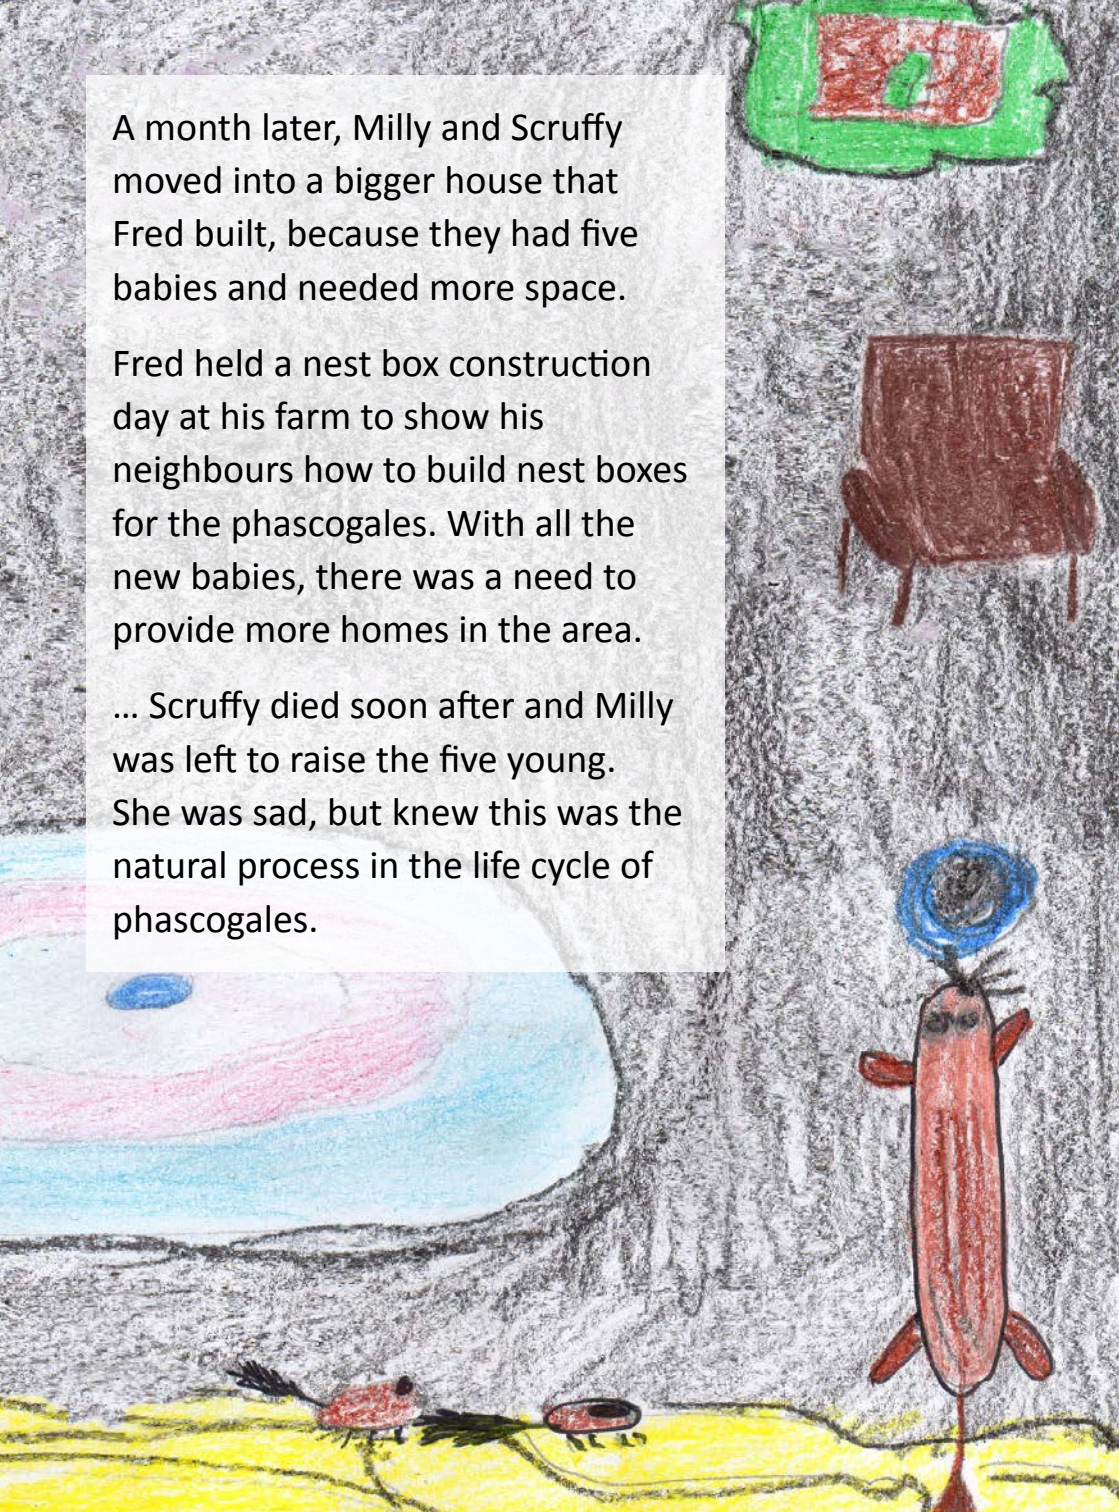 A month later, Milly and Scruffy
moved into a bigger house that
Fred built, because they had five
babies and needed more space.
Fred held a nest box construction
day at his farm to show his
neighbours how to build nest boxes
for the phascogales. With all the
new babies, there was a need to
provide more homes in the area.
... Scruffy died soon after and Milly
was left to raise the five young.
She was sad, but knew this was the
natural process in the life cycle of
phascogales.